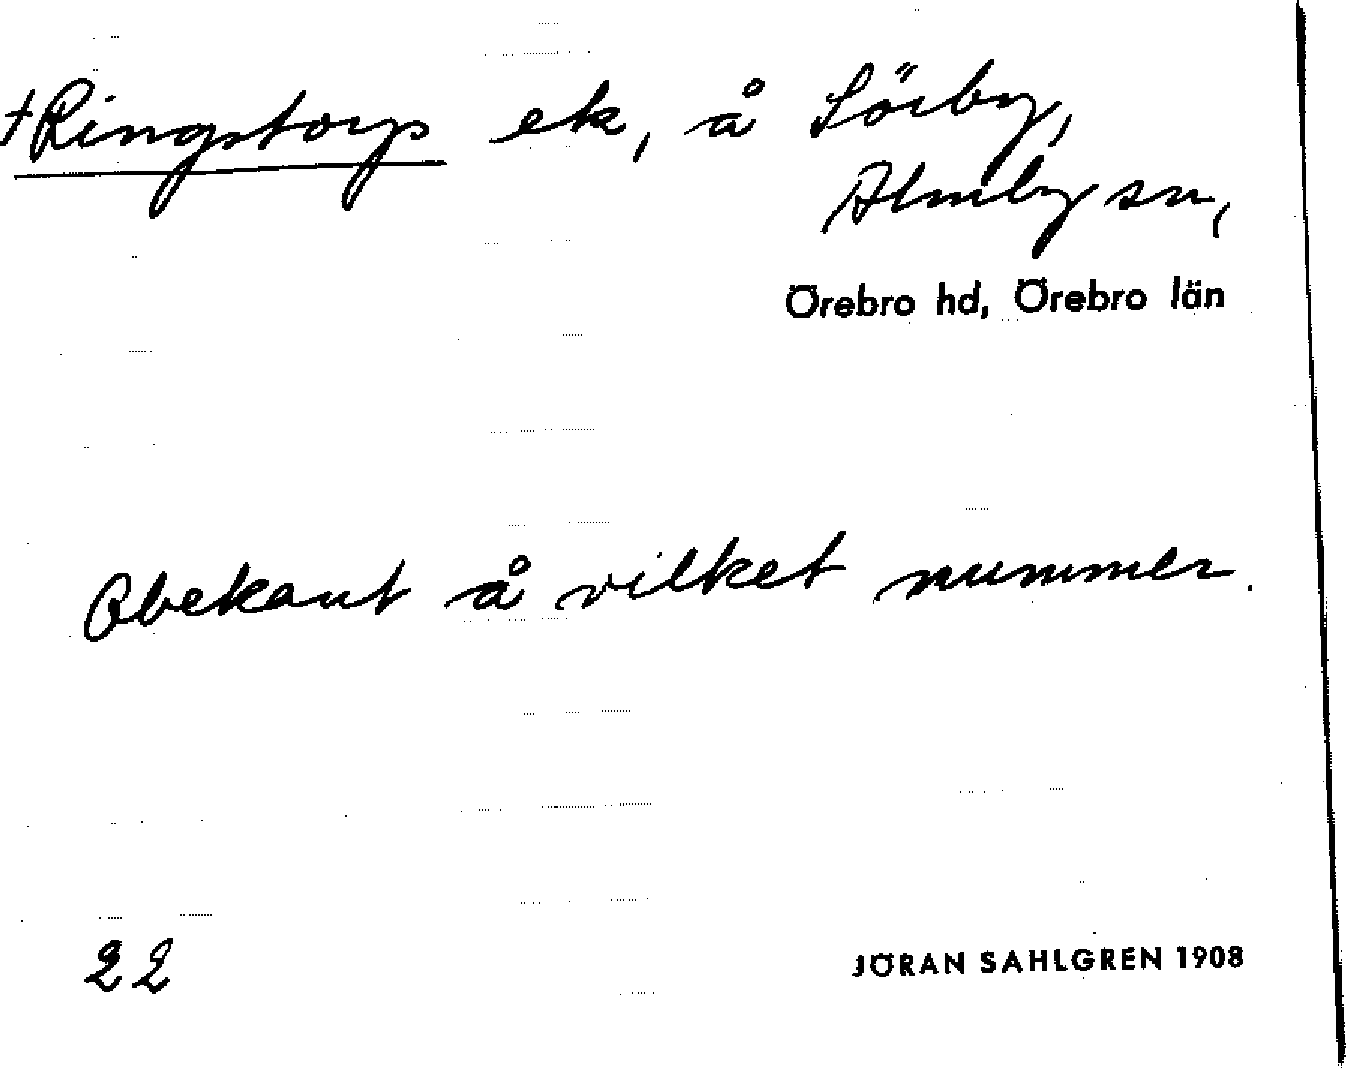 †Ringstorp ek, å Sörby,
Almby sn,
Örebro hd, Örebro län
Obekant å vilket nummer.
22
JÖRAN SAHLGREN 1908